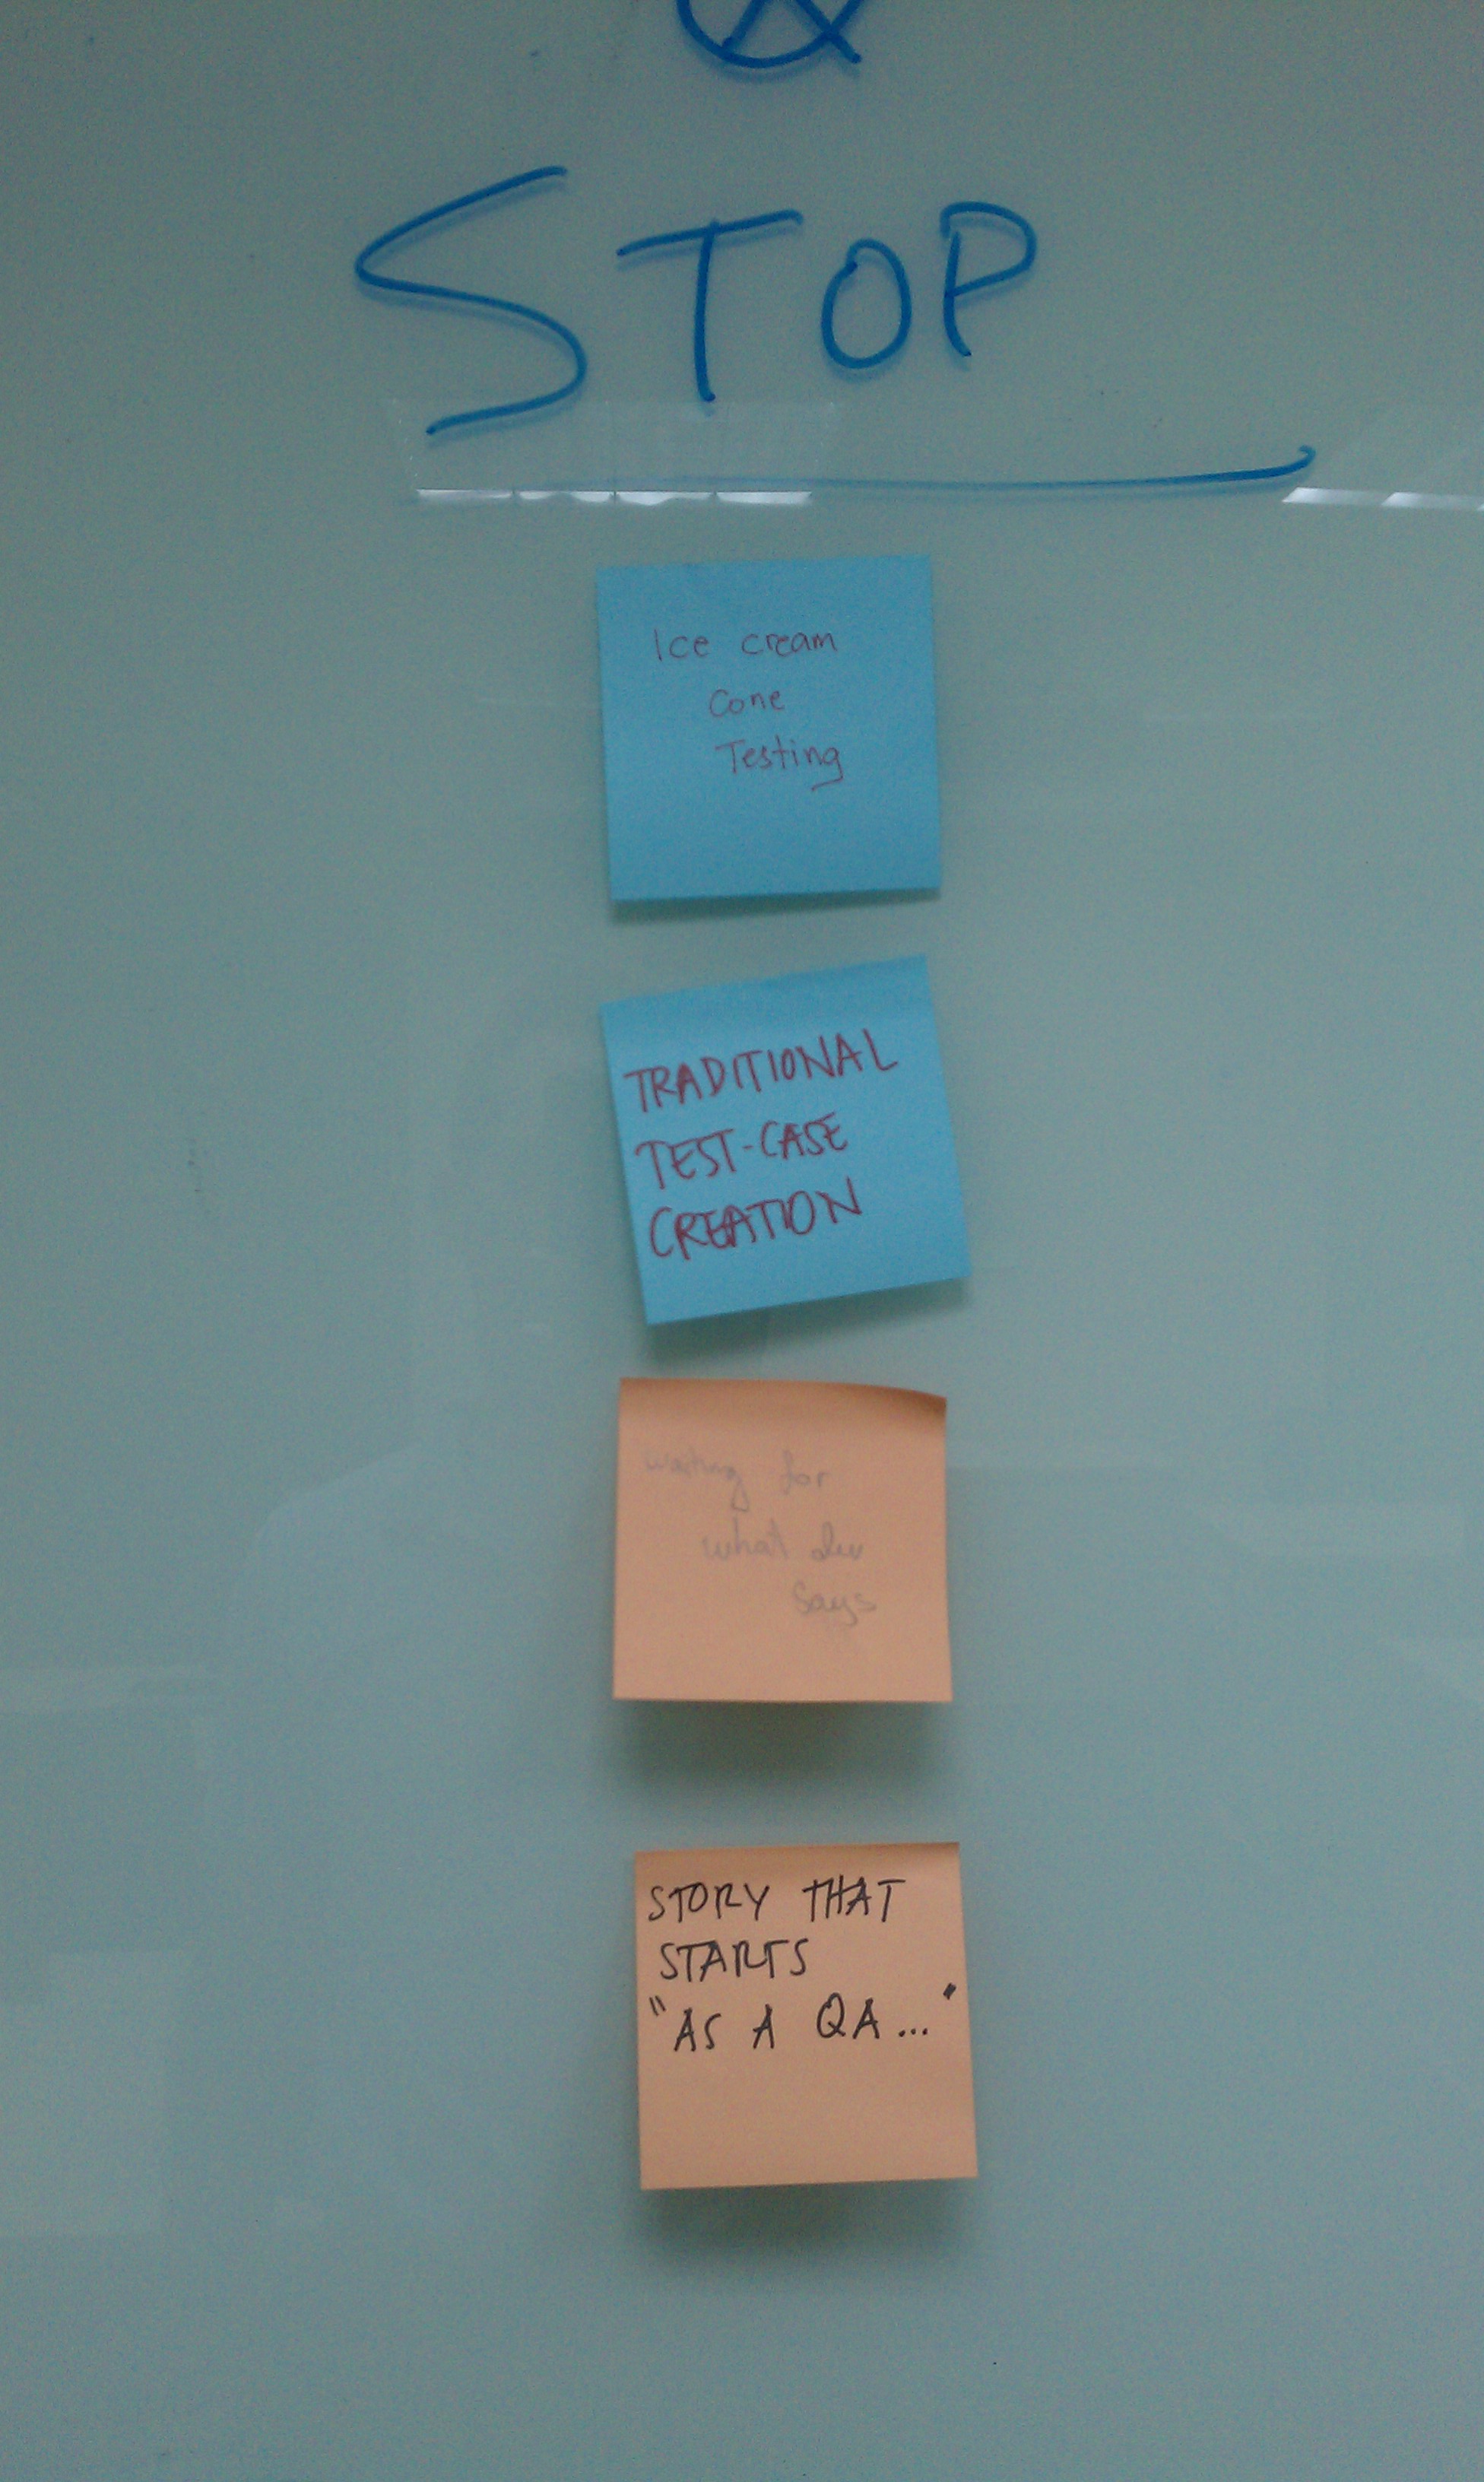 STOP
Ice cream
Cone
Testing
TRADITIONAL
TEST-CASE
CREATION
waiting for
what dev
says
STORY THAT
STARTS
"AS A QA..."